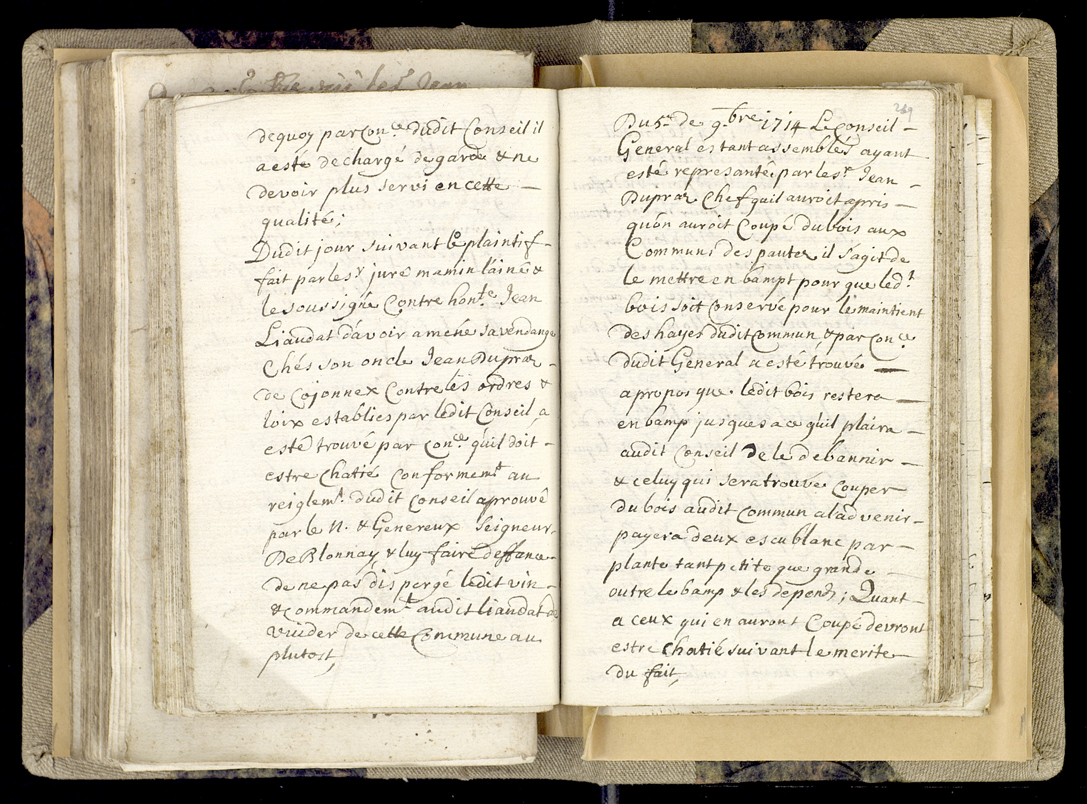 dequoy par Con.ce dudit Conseil il
a esté dechargé de garde & ne
devoir plus servi en cette —
qualité;
Dudit jour suivant le plaintif
fait par le sr juré mamin l'ainé &
le soussigné Contre hont.e Jean
Liaudat d'avoir amené sa vendange
Chés son oncle Jean Dupraz
de Cojonnex Contre les ordres &
loix establies par ledit Conseil, a
esté trouvé par con.ce qu'il doit
estre chatié conformem.t au
reiglem.t dudit Conseil aprouvé
par le N. & Genereux Seigneur
De Blonnay & luy faire deffance
de ne pas dispergé ledit vin
& commandem.t audit Liaudat de
vuider de cette Commune au
plutost,
269
Du 5.e de 9.bre 1714 Le Conseil —
General estant assemblés ayant
esté represanté par le sr Jean —
Dupraz Chef quil auroit apris —
qu'on auroit Coupé du bois aux
Communs des pautex il s'agit de
le mettre en bampt pour que led.t
bois soit Conservé pour le maintient
des hayes dudit Commun, & par Con.ce
dudit General a esté trouvé —
a propos que ledit bois restera —
en bamp jusques a ce qu'il plaira —
audit Conseil de le debannir —
& celuy qui sera trouvé couper
du bois audit Commun a l'advenir —
payera deux escu blanc par —
plante tant petite que grande —
outre le bamp & les depends; Quant —
a ceux qui en auront Coupé devront
estre chatié suivant le merite —
du fait,